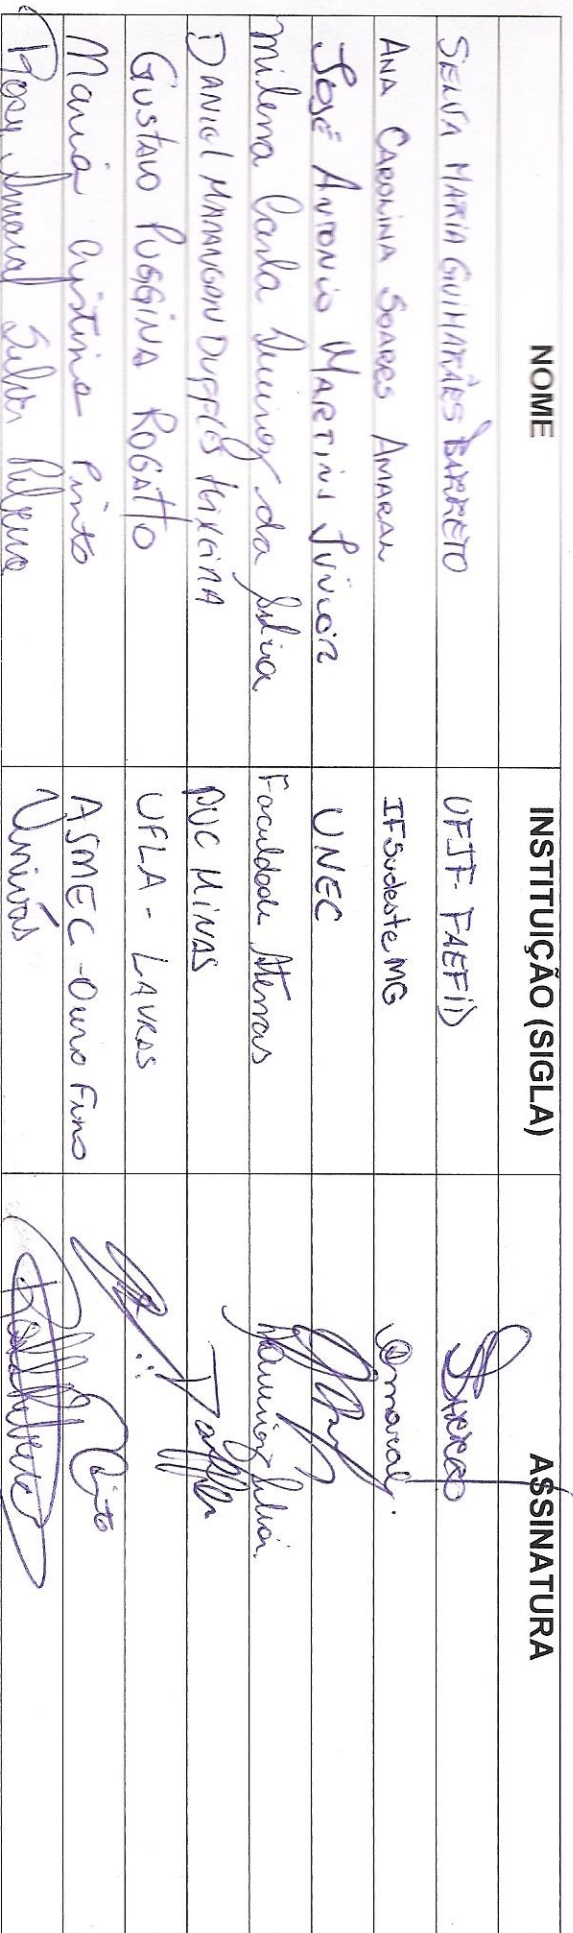 NOME INSTITUIÇÃO (SIGLA) ASSINATURA
SELVA MARIA GUIMARÃES BARRETO UFJF-FAEFID SBarreto
ANA CAROLINA SOARES AMARAL IFSudesteMG Amaral.
José Antonio Martins Júnior UNEC
Milena Carla Queiroz da Silva Faculdade Atenas Queiroz Silva.
DANIEL MARANGON DUFFLES TEIXEIRA PUC MINAS
GUSTAVO PUGGINA ROGATTO UFLA - LAVRAS
Maria Cristina Pinto ASMEC - Ouro Fino Pinto
Amaral Silva Ribeiro Univás